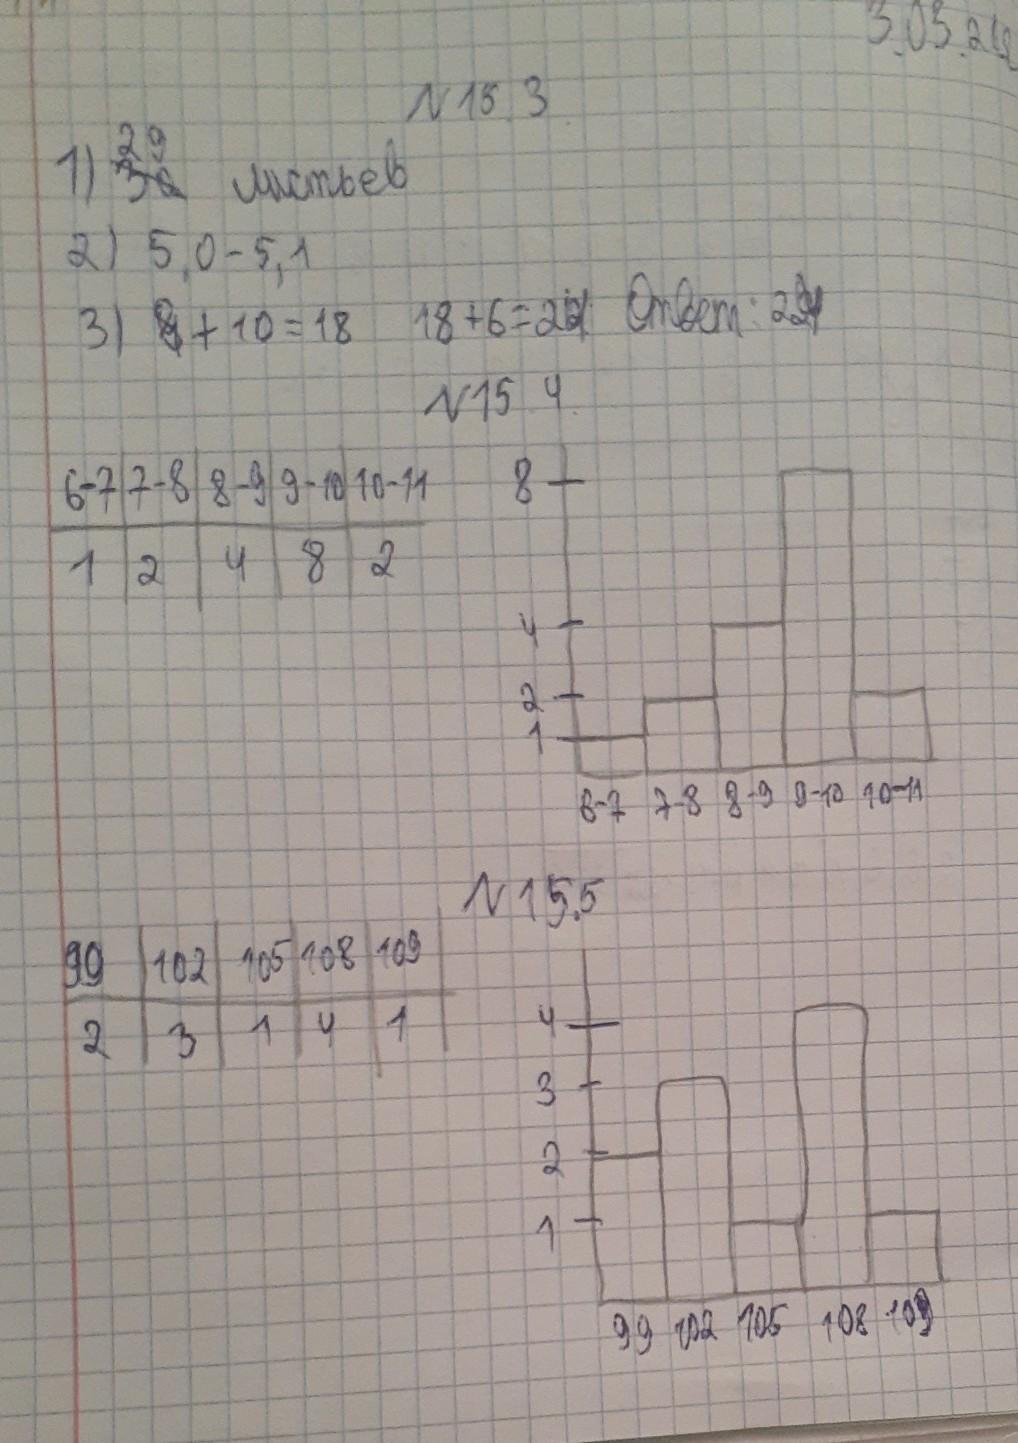 3.03.2
N 15 3
29
1) листьев
2) 5,0-5,1
3) 8+10=18 18+6=24 Ответ: 24
N 15 4
6-7 7-8 8-9 9-10 10-11
1 2 4 8 2
8
4
2
1
6-7 7-8 8-9 9-10 10-11
N 15.5
99 102 105 108 109
2 3 1 4 1
4
3
2
1
99 102 105 108 109